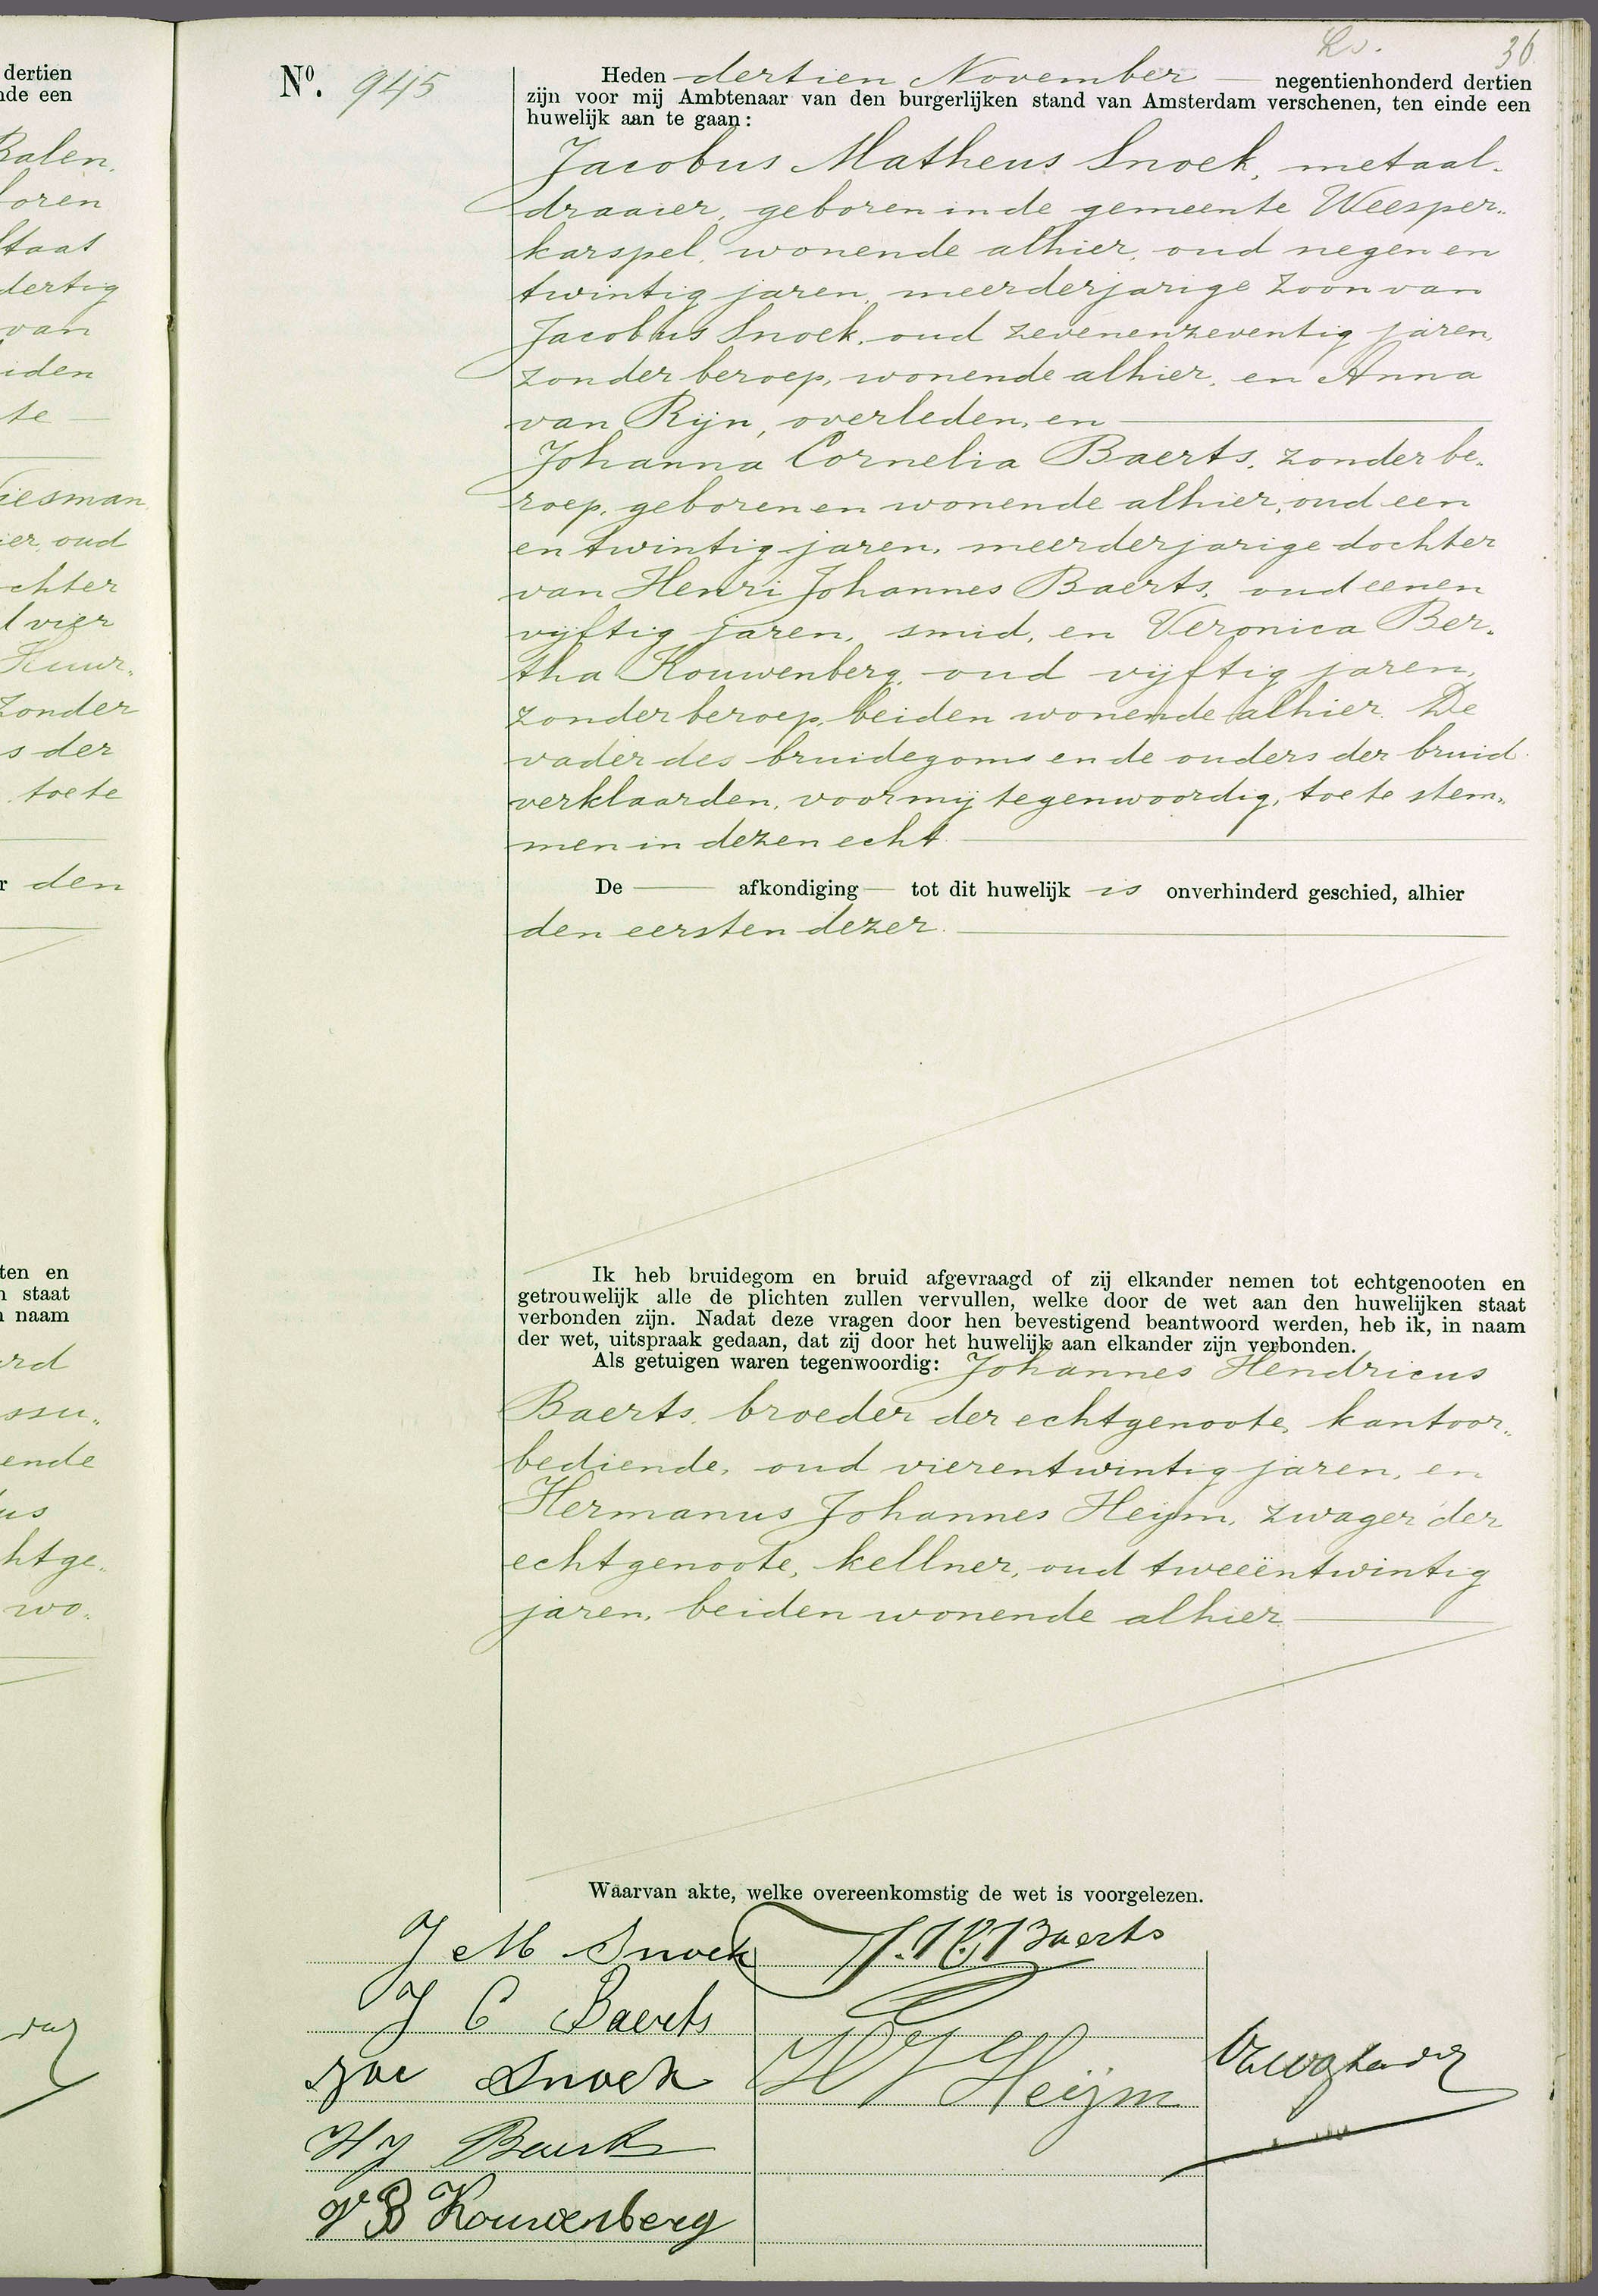 dertien
nde een
Balen.
boren
staat
dertig
van
iden
te —
Wiesman,
ier, oud
chter
d vier
Kuur-
zonder
s der
toe te
r den
ten en
n staat
n naam
erd
ssu-
ende
us
htge-
wo-
36
Nº. 945
Heden dertien November — negentienhonderd dertien
zijn voor mij Ambtenaar van den burgerlijken stand van Amsterdam verschenen, ten einde een
huwelijk aan te gaan:
Jacobus Matheus Snoek, metaal-
draaier, geboren in de gemeente Weesper-
karspel, wonende alhier, oud negen en
twintig jaren, meerderjarige zoon van
Jacobus Snoek, oud zevenenzeventig jaren,
zonder beroep, wonende alhier, en Anna
van Rijn, overleden, en —
Johanna Cornelia Baerts, zonder be-
roep, geboren en wonende alhier, oud een
en twintig jaren, meerderjarige dochter
van Henri Johannes Baerts, oud eenen
vijftig jaren, smid, en Veronica Ber-
tha Kouwenberg, oud vijftig jaren,
zonder beroep, beiden wonende alhier. De
vader des bruidegoms en de ouders der bruid
verklaarden, voor mij tegenwoordig, toe te stem-
men in dezen echt. —
De — afkondiging — tot dit huwelijk is onverhinderd geschied, alhier
den eersten dezer. —
Ik heb bruidegom en bruid afgevraagd of zij elkander nemen tot echtgenooten en
getrouwelijk alle de plichten zullen vervullen, welke door de wet aan den huwelijken staat
verbonden zijn. Nadat deze vragen door hen bevestigend beantwoord werden, heb ik, in naam
der wet, uitspraak gedaan, dat zij door het huwelijk aan elkander zijn verbonden.
Als getuigen waren tegenwoordig: Johannes Hendricus
Baerts, broeder der echtgenoote, kantoor-
bediende, oud vierentwintig jaren, en
Hermanus Johannes Heijm, zwager der
echtgenoote, kellner, oud tweeëntwintig
jaren, beiden wonende alhier —
Waarvan akte, welke overeenkomstig de wet is voorgelezen.
J M Snoek J. H. Baerts
J C Baerts
Jac Snoek H J Heijm
H J Baerts
V B Kouwenberg